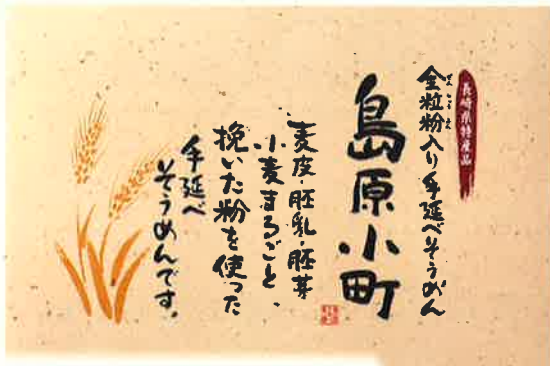 長崎県特産品
全粒粉入り手延べそうめん
島原小町
麦皮・胚乳・胚芽
小麦まるごと、
挽いた粉を使った
手延べ
そうめんです。